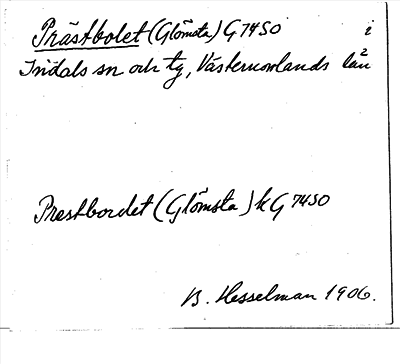 Prästbolet (Glömsta) G 7450 i
Indals sn och tg, Västernorrlands län 2
Prestbordet (Glömsta) k G 7450
B. Hesselman 1906.